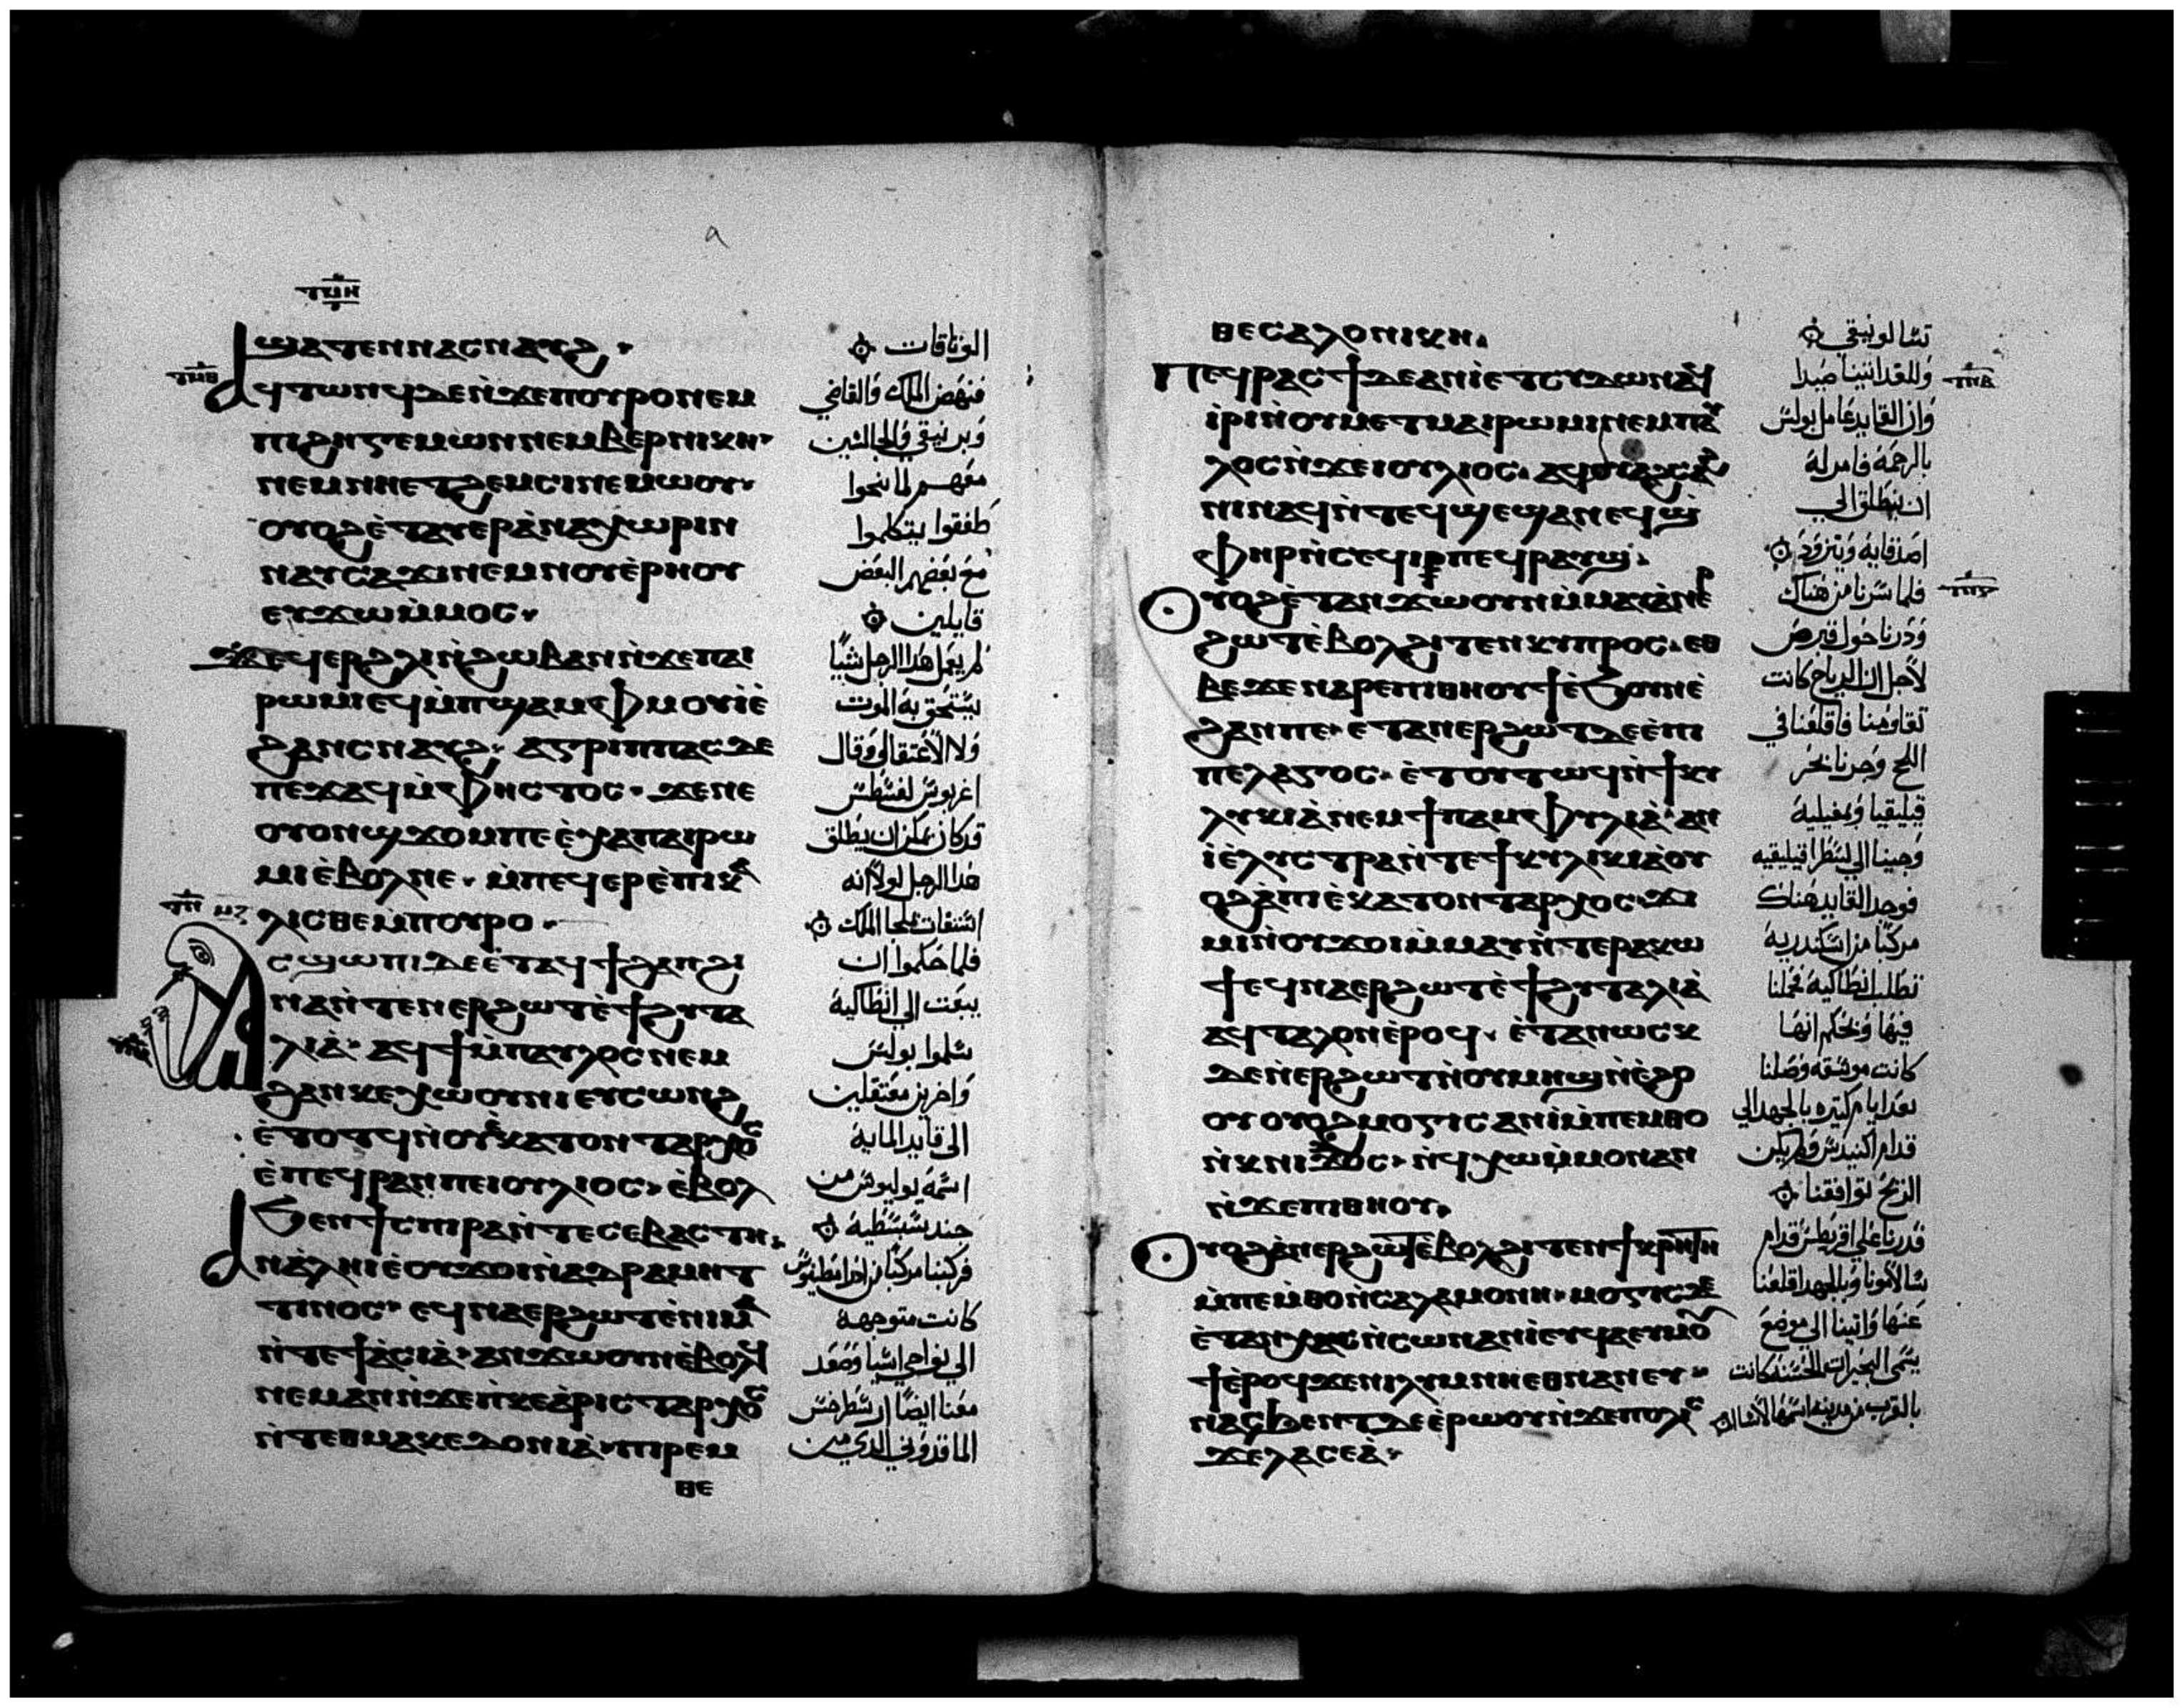 ϣⲁⲧⲉⲛ ⲛⲁⲥⲛⲁⲩϩ
ⲁϥⲧⲱⲛϥ ⲇⲉ ⲛ̀ϫⲉ ⲡⲟⲩⲣⲟ ⲛⲉⲙ
ⲡⲓϩⲏⲅⲉⲙⲱⲛ ⲛⲉⲙ ⲃⲉⲣⲛⲓⲕⲏ
ⲛⲉⲙ ⲛⲏⲉⲧϩⲉⲙⲥⲓ ⲛⲉⲙⲱⲟⲩ
ⲟⲩⲟϩ ⲉ̀ⲧⲁⲩⲉⲣⲁ̀ⲛⲁⲭⲱⲣⲓⲛ
ⲛⲁⲩⲥⲁϫⲓ ⲛⲉⲙ ⲛⲟⲩⲉ̀ⲣⲏⲟⲩ
ⲉⲩϫⲱ ⲙ̀ⲙⲟⲥ
ϫⲉ ⲛⲉϥⲉⲣϩⲗⲓ ⲛ̀ϩⲱⲃ ⲁⲛ ⲛ̀ϫⲉ ⲡⲁⲓ
ⲣⲱⲙⲓ ⲉϥⲙ̀ⲡϣⲁ ⲙ̀ⲫⲙⲟⲩ ⲓⲉ̀
ϩⲁⲛⲥⲛⲁⲩϩ ⲁⲅⲣⲓⲡⲡⲁⲥ ⲇⲉ
ⲡⲉϫⲁϥ ⲙ̀ⲫⲏⲥⲧⲟⲥ ϫⲉ ⲛⲉ
ⲟⲩⲟⲛ ϣϫⲟⲙ ⲡⲉ ⲉ̀ⲭⲁ ⲡⲁⲓⲣⲱ
ⲙⲓ ⲉ̀ⲃⲟⲗ ⲛⲉ ⲙ̀ⲡⲉϥⲉⲣⲉ̀ⲡⲓⲕⲁ
ⲗⲓⲥⲑⲉ ⲙ̀ⲡⲟⲩⲣⲟ
ⲁⲥϣⲱⲡⲓ ⲇⲉ ⲉ̀ⲧⲁϥϯϩⲁⲡ ϩⲓ
ⲛⲁ ⲛ̀ⲧⲉⲛⲉⲣϩⲱⲧ ⲉ̀ϯϩⲩⲧⲁ
ⲗⲓⲁ̀ ⲁϥϯ ⲙ̀ⲡⲁⲩⲗⲟⲥ ⲛⲉⲙ
ϩⲁⲛⲕⲉⲭⲱⲟⲩⲛⲓ ⲉⲩⲥⲱⲛϩ
ⲉ̀ⲧⲟⲧϥ ⲛ̀ⲟⲩⲉ̀ⲕⲁⲧⲟⲛⲧⲁⲣⲭⲟⲥ
ⲉ̀ⲡⲉϥⲣⲁⲛ ⲡⲉ ⲓⲟⲩⲗⲓⲟⲥ ⲉ̀ⲃⲟⲗ
ϧⲉⲛ ϯⲥⲡⲓⲣⲁ ⲛ̀ⲧⲉ ⲥⲉⲃⲁⲥⲧⲏ
ⲁⲛⲁ̀ⲗⲏⲓ ⲉ̀ⲟⲩϫⲟⲓ ⲛ̀ⲁⲇⲣⲁⲙⲏⲧ
ⲧⲓⲛⲟⲥ ⲉϥⲛⲁⲉⲣϩⲱⲧ ⲉ̀ⲛⲓⲙⲁ
ⲛ̀ⲧⲉ ϯⲁ̀ⲥⲓⲁ̀ ⲁⲛϫⲱⲟⲩⲛ ⲉ̀ⲃⲟⲗ ϥ
ⲛⲉⲙⲁⲛ ⲛ̀ϫⲉ ⲡ̀ⲕⲉⲁ̀ⲣⲓⲥⲧⲁⲣⲭⲟⲥ
ⲛ̀ⲧⲉ ⲑⲙⲁⲕⲉⲇⲟⲛⲓⲁ̀ ⲡⲓⲣⲉⲙ
ⲑⲉ
الوثاقات
فنهض الملك والقاضي
وبرنيقي والجالسين
معهم لما تنحوا
طفقوا يتكلموا
مع بعضهم البعض
قايلين
لم يعمل هذا الرجل شيئًا
يستحق به الموت
ولا الاعتقال وقال
اغربوس لفسطس
قد كان يمكن ان يطلق
هذا الرجل لولا انه
استغاث بملجا الملك
فلما حكموا ان
يبعث الى انطاكية
سلموا بولس
واخرين معتقلين
الى قايد الماية
اسمه يوليوس من
جند سبسطية
فركبنا مركبًا
كانت متوجهة
الى نواحي اسيا وصعد
معنا ايضًا ارسطرخس
الماقدوني الذي من
ⲑⲉⲥⲁⲗⲟⲛⲓⲕⲏ
ⲡⲉϥⲣⲁⲥϯ ⲇⲉ ⲁⲛⲓ̀ ⲉ̀ⲧⲥⲩⲇⲱⲛ ⲁϥ
ⲓ̀ⲣⲓ ⲛ̀ⲟⲩⲙⲉⲧⲙⲁⲓⲣⲱⲙⲓ ⲛⲉⲙ ⲡⲁⲩ
ⲗⲟⲥ ⲛ̀ϫⲉ ⲓⲟⲩⲗⲓⲟⲥ ⲁϥⲟⲩⲁϩⲥⲁϩ
ⲛⲓ ⲛⲁϥ ⲛ̀ⲧⲉϥϣⲉ ϣⲁ ⲛⲉϥϣ
ⲫⲏⲣ ⲛ̀ⲥⲉϥⲓⲡⲉϥⲣⲱⲟⲩϣ
ⲟⲩⲟϩ ⲉ̀ⲧⲁⲛϫⲱⲟⲩⲛ ⲙ̀ⲙⲁⲩ ⲁ̀ⲛⲉⲣ
ϩⲱⲧ ⲉ̀ⲃⲟⲗ ϩⲓⲧⲉⲛ ⲕⲩⲡⲣⲟⲥ ⲉⲑ
ⲃⲉ ϫⲉ ⲛⲁⲣⲉ ⲡⲓⲑⲏⲟⲩ ϯ ⲉ̀ϧⲟⲩⲛ ⲉ̀
ϩⲣⲁⲛ ⲡⲉ ⲉⲧⲁⲛⲉⲣϩⲱⲧ ⲇⲉ ⲉ̀ⲡⲓ
ⲡⲉⲗⲁⲅⲟⲥ ⲉ̀ⲧⲟⲩⲧⲱϥ ⲛ̀ϯⲕⲩ
ⲗⲩⲕⲓⲁ̀ ⲛⲉⲙ ϯⲡⲁⲙⲫⲩⲗⲓⲁ̀ ⲁⲛ
ⲓ̀ ⲉ̀ⲗⲩⲥⲧⲣⲁ ⲛ̀ⲧⲉ ϯⲕⲩⲗⲓⲕⲓⲁ̀ ⲟⲩ
ⲟϩ ⲁ̀ⲡⲓⲉ̀ⲕⲁⲧⲟⲛⲧⲁⲣⲭⲟⲥ ϫⲓ
ⲙⲓ ⲛ̀ⲟⲩϫⲟⲓ ⲙ̀ⲙⲁⲩ ⲛ̀ⲧⲉ ⲣⲁⲕⲟϯ
ⲉϥⲛⲁⲉⲣϩⲱⲧ ⲉ̀ϯϩⲩⲧⲁⲗⲓⲁ̀
ⲁϥⲧⲁⲗⲟⲛ ⲉ̀ⲣⲟϥ ⲉ̀ⲧⲁⲛⲱⲥⲕ
ⲇⲉ ⲛ̀ⲉⲣϩⲱⲧ ⲛ̀ⲟⲩⲙⲏϣ ⲛ̀ⲉ̀ϩⲟ
ⲟⲩ ⲟⲩⲟϩ ⲙⲟⲅⲓⲥ ⲁⲛⲓ̀ ⲙ̀ⲡⲉⲙⲑⲟ
ⲛ̀ⲕⲛⲓⲇⲟⲥ ⲛ̀ϥⲭⲱ ⲙ̀ⲙⲟⲛ ⲁⲛ
ⲛ̀ϫⲉ ⲡⲓⲑⲏⲟⲩ
ⲟⲩⲟϩ ⲁ̀ⲛⲉⲣϩⲱⲧ ⲉ̀ⲃⲟⲗ ϩⲓⲧⲉⲛ ϯⲕⲣⲏⲧⲏ
ⲙ̀ⲡⲉⲙ̀ⲑⲟ ⲛ̀ⲥⲁⲗⲁⲙⲟⲛⲏ ⲙⲟⲅⲓⲥ ⲇⲉ
ⲉ̀ⲧⲁⲛⲭⲁⲥ ⲛ̀ⲥⲱⲛ ⲁⲛⲓ̀ ⲉⲩⲙⲁ ⲉⲩⲙⲟⲩ
ϯ ⲉ̀ⲣⲟϥ ϫⲉ ⲛⲓⲗⲩⲙⲏⲛ ⲉⲑⲛⲁⲛⲉⲩ
ⲛⲁⲥϧⲉⲛⲧ ⲇⲉ ⲉ̀ⲣⲱⲟⲩ ⲛ̀ϫⲉ ⲡⲟⲗⲓⲥ
ϫⲉ ⲗⲁⲥⲉⲁ̀
تسالونيقي
وللغد اتينا صيدا
وان القايد عامل بولس
بالرحمة فامر له
ان ينطلق الى
اصدقايه ويتزود
فلما سرنا من هناك
ودرنا حول قبرص
لاجل ان الرياح كانت
تقاومنا فاقلعنا في
اللج وجزنا بحر
قيليقيا وبمفيلية
وجينا الى لسطرا قيليقيه
فوجد القايد هناك
مركبًا من اسكندرية
تطلب انطاكية فحملنا
فيها وبحكم انها
كانت موسقه وصلنا
بعد ايام كثيره بالجهد الى
قدام اكنيدس ولم يكن
الريح توافقنا
فدرنا على اقريطس قدام
سالامونا وبالجهد اقلعنا
عنها واتينا الى موضع
يسمى البحيرات الحسنة كانت
بالقرب من مدينة اسمها لاسا